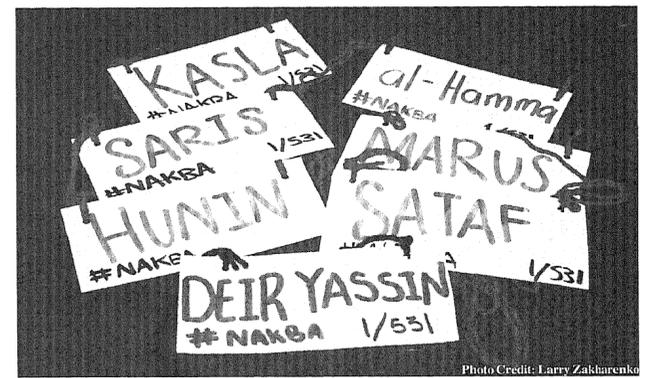 KASLA
#NAKBA 1/531
al-Hamma
#NAKBA 1/531
SARIS
#NAKBA 1/531
MARUS
HUNIN
#NAKBA
SATAF
1/531
DEIR YASSIN
#NAKBA 1/531
Photo Credit: Larry Zakharenko